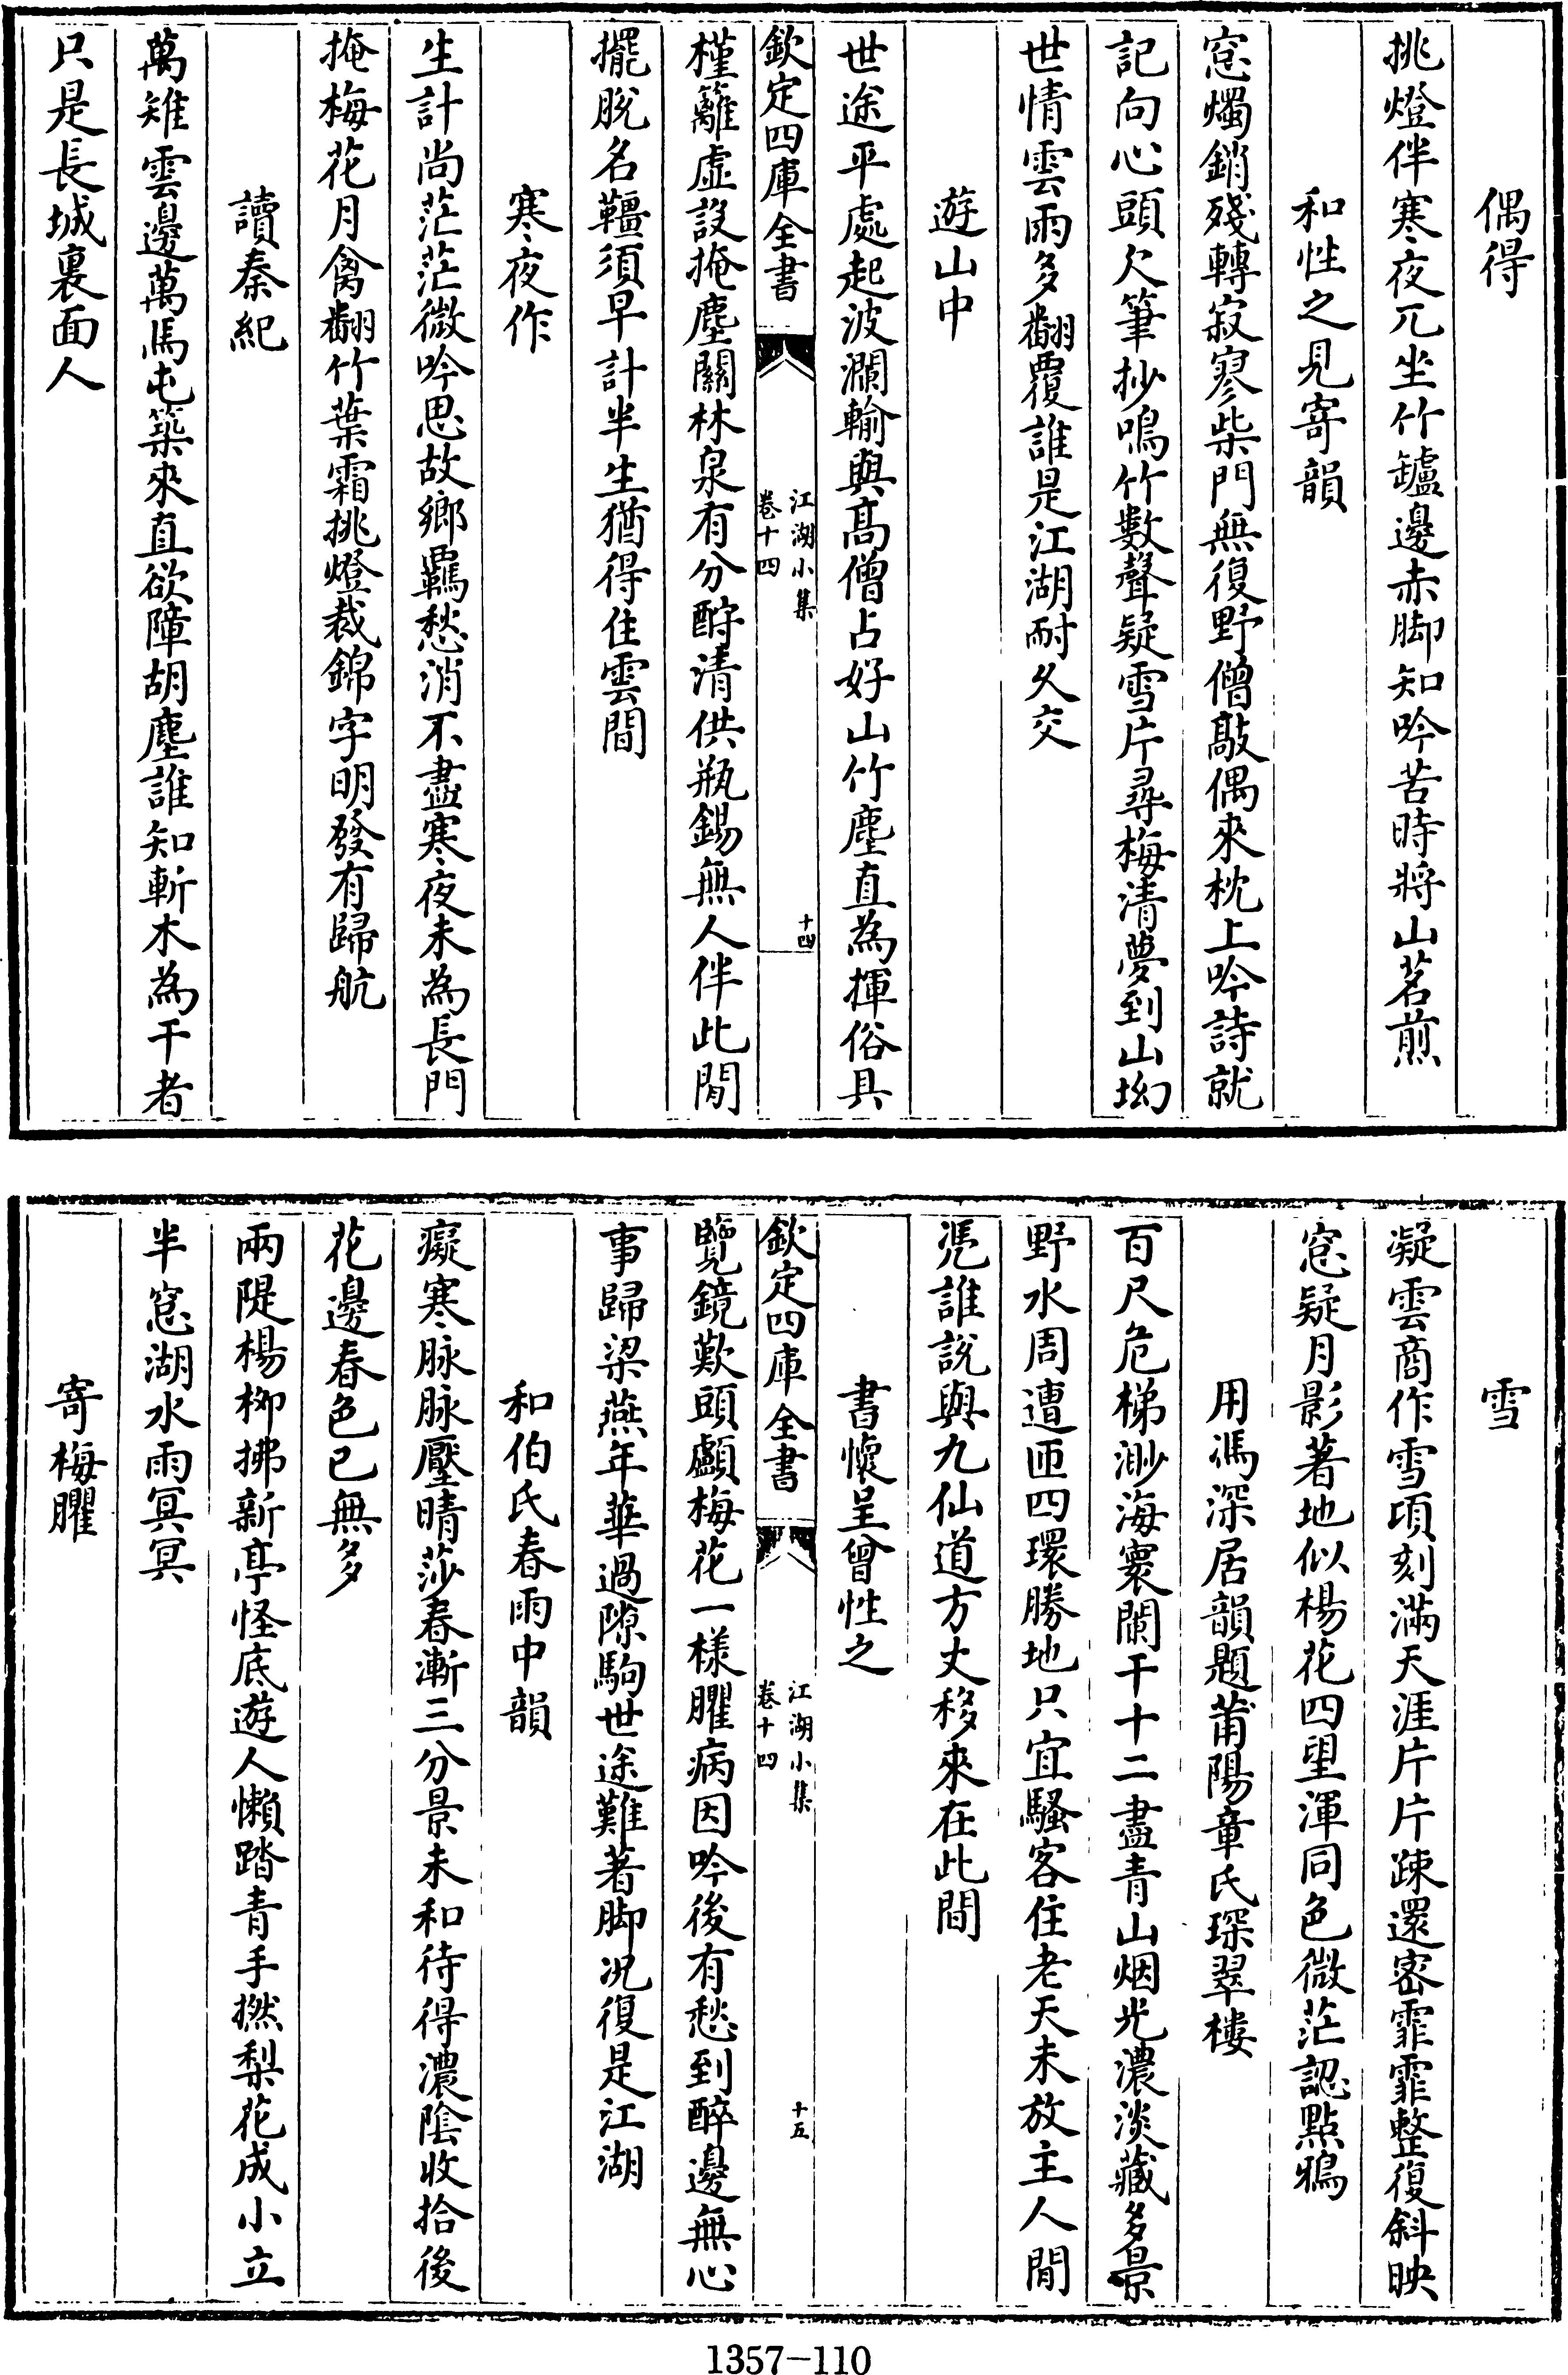 偶得
挑燈伴寒夜兀坐竹罏邊赤脚知吟苦時將山茗煎
和性之見寄韻
窓燭銷殘轉寂寥柴門無復野僧敲偶來枕上吟詩就
記向心頭欠筆抄鳴竹數聲疑雪片尋梅清夢到山坳
世情雲雨多翻覆誰是江湖耐久交
遊山中
世途平處起波瀾輸與髙僧占好山竹塵直為揮俗具
欽定四庫全書
江湖小集
卷十四
十四
槿籬虛設掩塵關林泉有分酧清供瓶錫無人伴此閒
擺脫名韁須早計半生猶得住雲間
寒夜作
生計尚茫茫微吟思故鄉羈愁消不盡寒夜未為長門
掩梅花月禽翻竹葉霜挑燈裁錦字明發有歸航
讀秦紀
萬雉雲邊萬馬屯築來直欲障胡塵誰知斬木為干者
只是長城裏面人
雪
凝雲商作雪頃刻滿天涯片片踈還宻霏霏整復斜映
窓疑月影著地似楊花四望渾同色微茫認點鴉
用馮深居韻題莆陽章氏琛翠樓
百尺危梯渺海寰闌干十二盡青山烟光濃淡藏多景
野水周遭匝四環勝地只宜騷客住老天未放主人閒
凭誰說與九仙道方丈移來在此間
書懷呈曾性之
欽定四庫全書
江湖小集
卷十四
十五
覽鏡歎頭顱梅花一様臞病因吟後有愁到醉邊無心
事歸梁燕年華過隙駒世途難著脚況復是江湖
和伯氏春雨中韻
癡寒脉脉壓晴莎春漸三分景未和待得濃陰收拾後
花邊春色已無多
兩隄楊栁拂新亭怪底遊人懶踏青手撚梨花成小立
半窓湖水雨冥冥
寄梅臞
1357-110